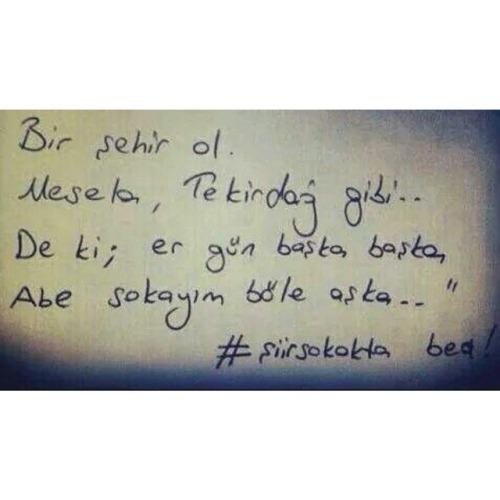 Bir şehir ol.
Mesela, Tekirdağ gibi..
De ki; er gün başka başka,
Abe sokayım böle aşka.."
#şiirsokakta bea!